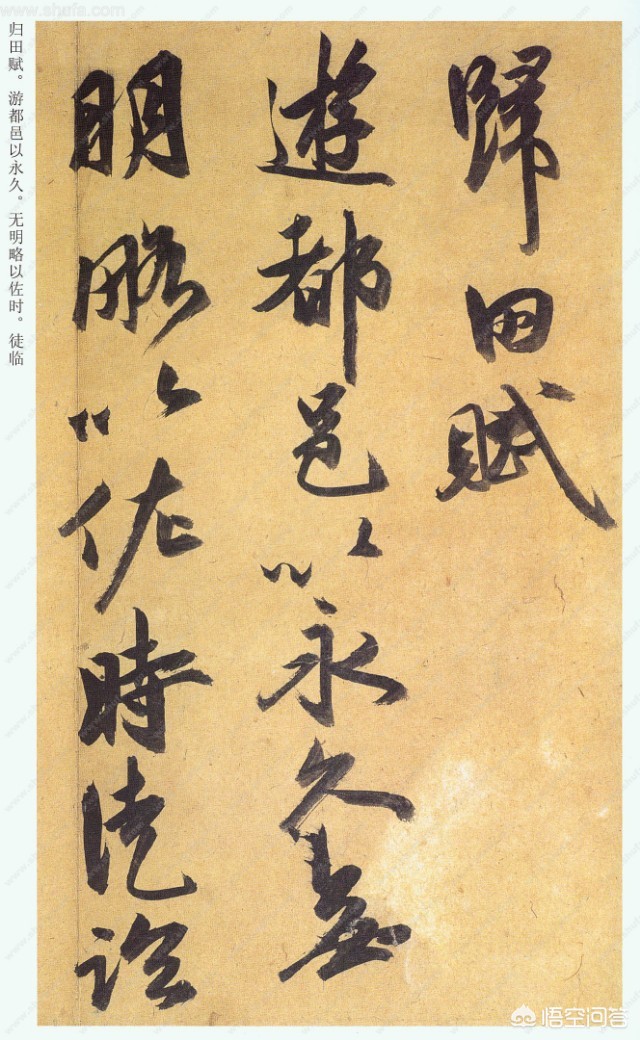 歸田賦
遊都邑以永久無
明略以佐時徒臨
归田赋。游都邑以永久。无明略以佐时。徒临
悟空问答